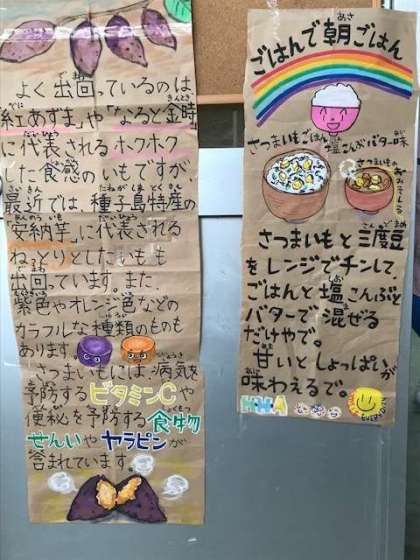 よく出回っているのは、
「紅あずま」や「なると金時」
に代表されるホクホク
した食感のいもですが、
最近では、種子島特産の
「安納芋」に代表される
ねっとりとしたいもも
出回っています。また、
紫色やオレンジ色などの
カラフルな種類のものも
あります。
さつまいもには、病気を
予防するビタミンCや
便秘を予防する食物
せんいやヤラピンが
含まれています。
ごはんで朝ごはん
さつまいもごはん塩こんぶバター味
さつまいもの
おみそしる
さつまいもと三度豆
をレンジでチンして
ごはんと塩こんぶと
バターで混ぜる
だけやで。
甘いとしょっぱいが
味わえるで。